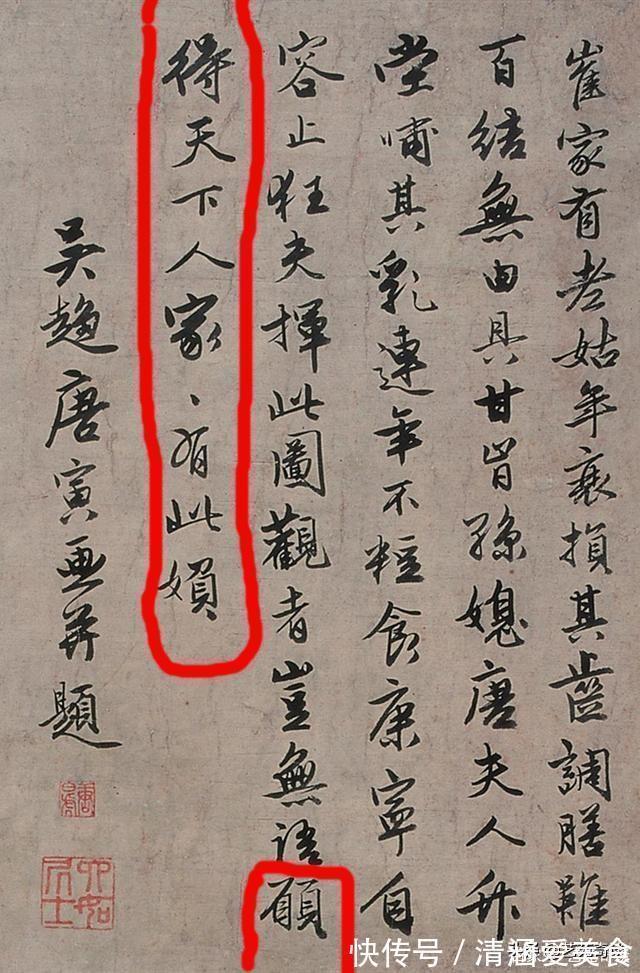 崔家有老姑年衰損其齒調膳難
百結無由具甘旨孫媳唐夫人升
堂哺其乳連年不粒食康寧自
容止狂夫揮此圖觀者豈無語願
得天下人家、有此嬪
吳趨唐寅画并題
六如居士
快传号 / 清涵爱美食